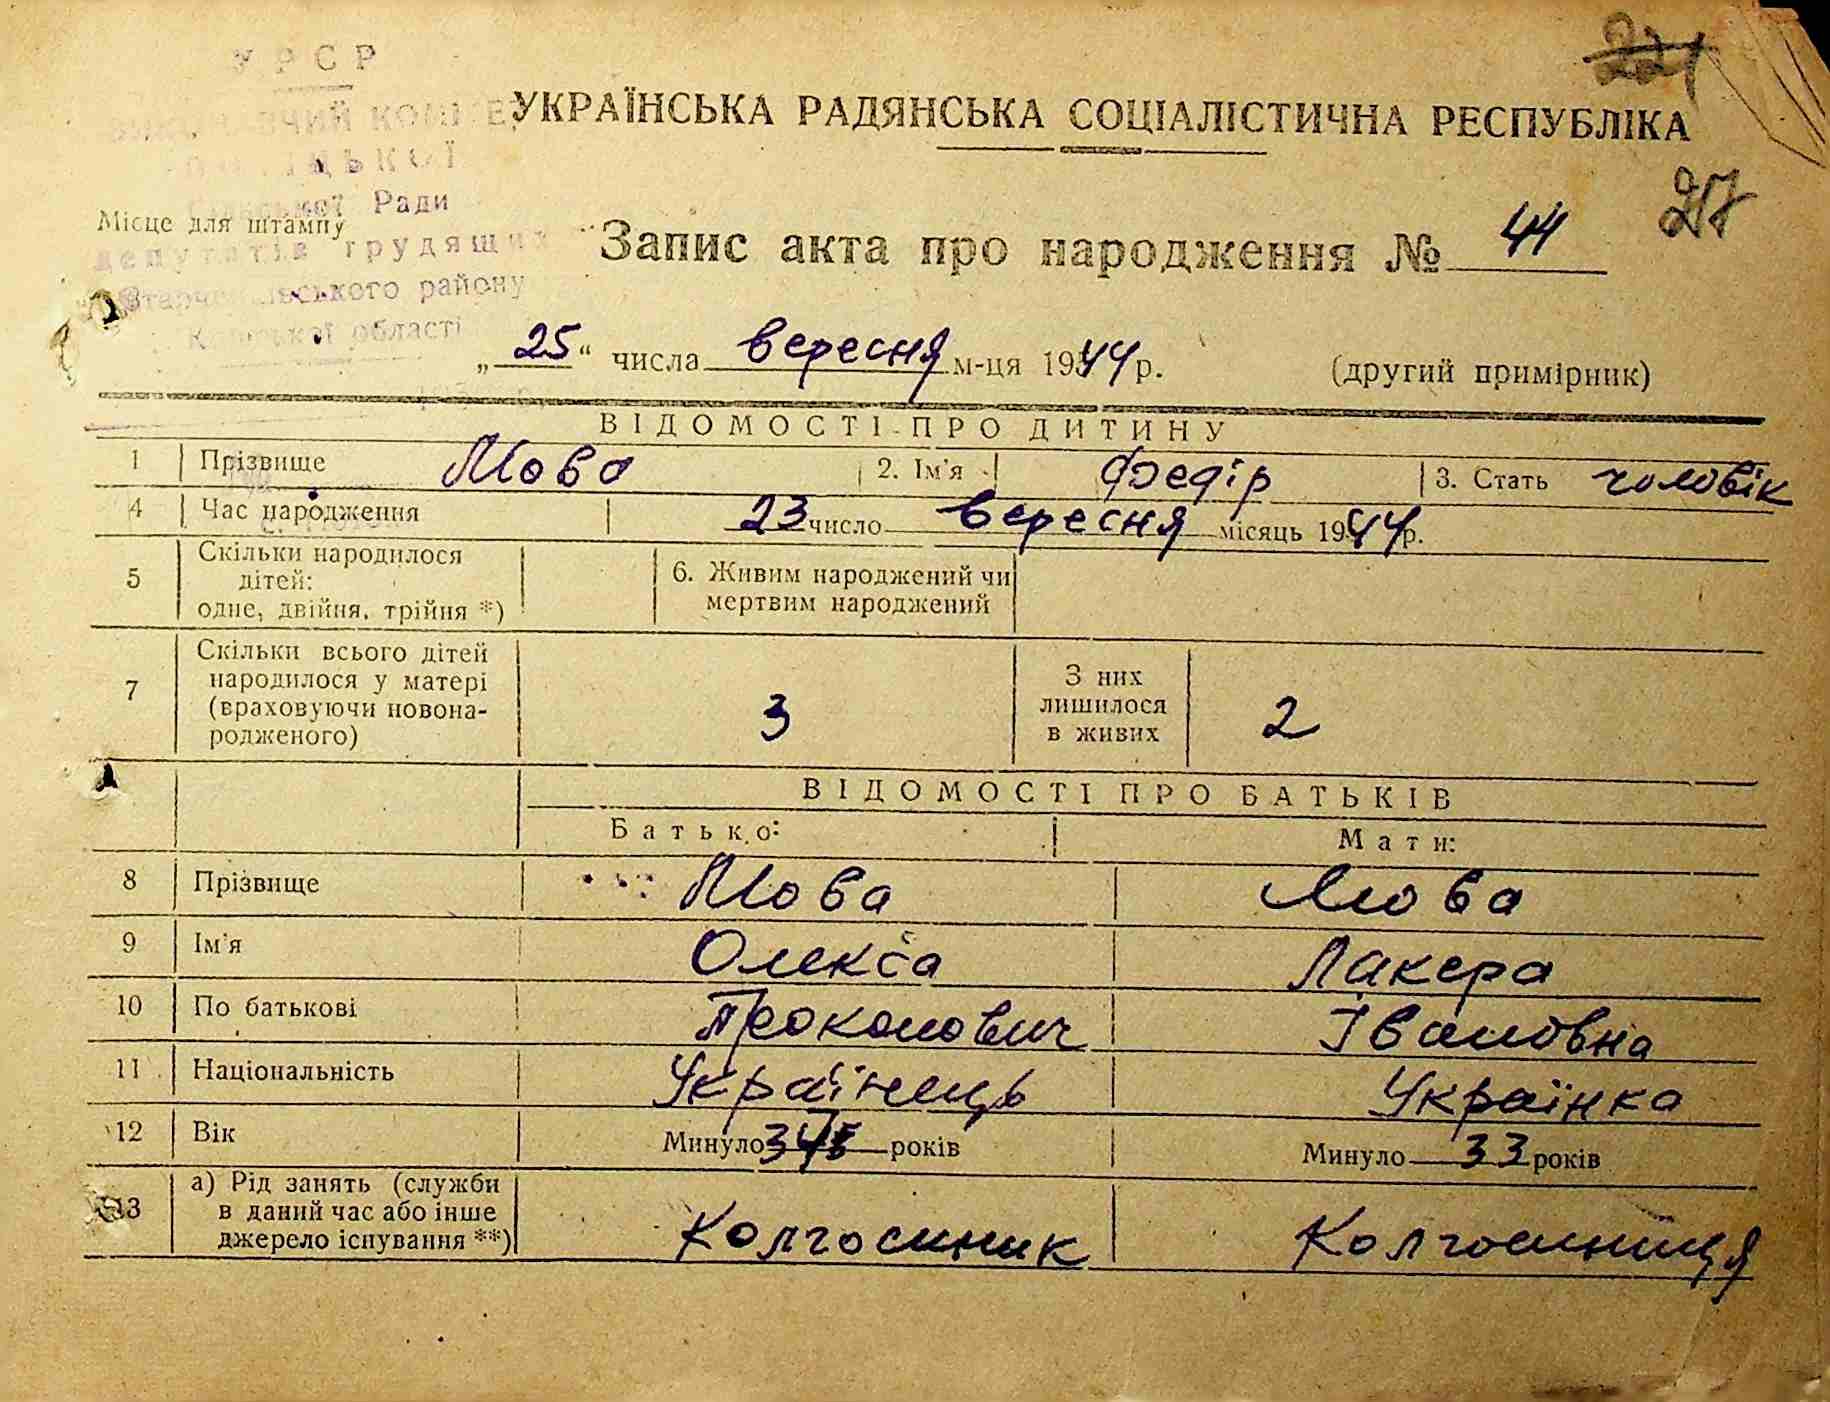 УРСР
УКРАЇНСЬКА РАДЯНСЬКА СОЦІАЛІСТИЧНА РЕСПУБЛІКА
217
Ради
Місце для штампу
депутатів трудящих
Запис акта про народження № 44
району
області
„25“ числа вересня м-ця 1944 р. (другий примірник)
ВІДОМОСТІ ПРО ДИТИНУ
1 Прізвище Мова 2. Ім'я Федір 3. Стать чоловік
4 Час народження 23 число вересня місяць 1944 р.
5 Скільки народилося дітей: одне, двійня, трійня *) 6. Живим народжений чи мертвим народжений
7 Скільки всього дітей народилося у матері (враховуючи новонародженого) 3 З них лишилося в живих 2
ВІДОМОСТІ ПРО БАТЬКІВ
Батько: Мати:
8 Прізвище Мова Мова
9 Ім'я Олекса Лакера
10 По батькові Прокопович Івановна
11 Національність Українець Українка
12 Вік Минуло років Минуло 33 років
13 а) Рід занять (служби в даний час або інше джерело існування **) Колгоспник Колгоспниця